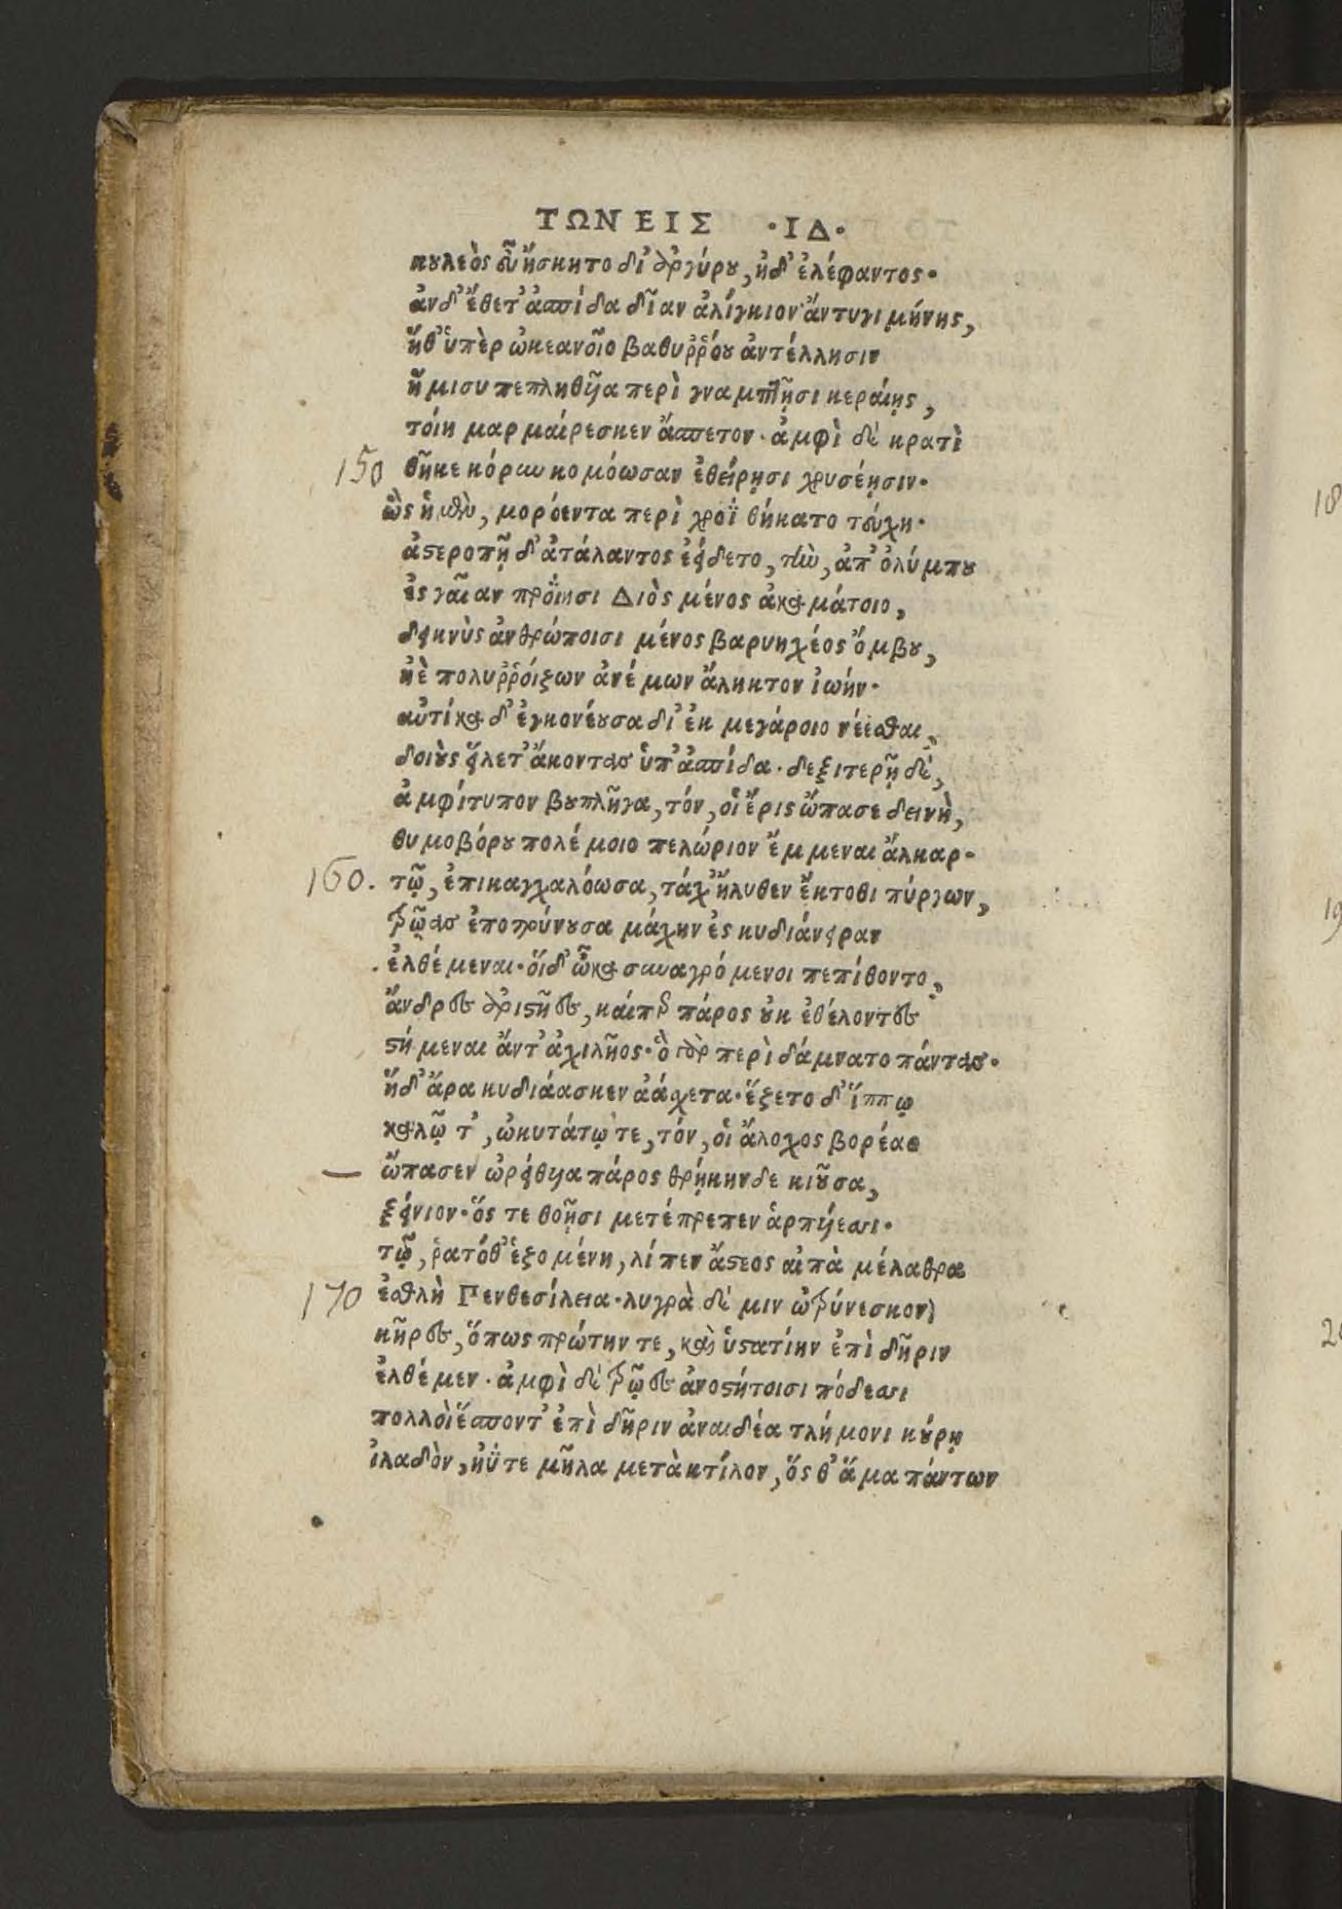 ΤΩΝ ΕΙΣ ·ΙΔ·
κουλεὸς εὖ ἤσκητο δι᾽ ἀργύρου, ἠδ᾽ ἐλέφαντος·
ἀνδ᾽ ἔθετ᾽ ἀσπίδα δῖαν ἀλίγκιον ἄντυγι μήνης,
ἥθ᾽ ὑπὲρ ὠκεανοῖο βαθυῤῥόου ἀντέλλησιν
ἥμισυ πεπληθῦα περὶ γναμπτῇσι κεραίῃς,
τόιη μαρμαίρεσκεν ἄσπετον· ἀμφὶ δὲ κρατὶ
150 θῆκε κόρυν κομόωσαν ἐθείρῃσι χρυσέῃσιν·
ὣς ἡ μὲν, μορόεντα περὶ χροῒ θήκατο τεύχη·
ἀστεροπῇ δ᾽ ἀτάλαντος ἐείδετο, τὴν, ἀπ᾽ ὀλύμπου
ἐς γαῖαν προΐησι Διὸς μένος ἀκαμάτοιο,
δεικνὺς ἀνθρώποισι μένος βαρυηχέος ὄμβου,
ἠὲ πολυῤῥοίζων ἀνέμων ἄληκτον ἰωήν·
αὐτίκα δ᾽ ἐγκονέουσα δι᾽ ἐκ μεγάροιο νέεσθαι,
δοιοὺς εἵλετ᾽ ἄκοντας ὑπ᾽ ἀσπίδα· δεξιτερῇ δὲ,
ἀμφίτυπον βουπλῆγα, τόν, οἱ ἔρις ὤπασε δεινὴ,
θυμοβόρου πολέμοιο πελώριον ἔμμεναι ἄλκαρ·
160. τῷ, ἐπικαγχαλόωσα, τάχ᾽ ἤλυθεν ἔκτοθι πύργων,
τρῶας ἐποτρύνουσα μάχην ἐς κυδιάνειραν
ἐλθέμεναι· ὅιδ᾽ ὦκα συναγρόμενοι πεπίθοντο,
ἄνδρες ἀριστῆες, κάιπερ πάρος οὐκ ἐθέλοντες
στήμεναι ἄντ᾽ ἀχιλῆος· ὃ γὰρ περὶ δάμνατο πάντας·
ἥδ᾽ ἄρα κυδιάασκεν ἀάσχετα· ἕζετο δ᾽ ἵππῳ
καλῷ τ᾽, ὠκυτάτῳ τε, τόν, οἱ ἄλοχος βορέαο
ὤπασεν ὠρείθυα πάρος θρήκηνδε κιοῦσα,
ξείνιον· ὅς τε θοῇσι μετέπρεπεν ἁρπύεσσι·
τῷ, ῥα τόθ᾽ ἑζομένη, λίπεν ἄστεος αἰπὰ μέλαθρα
170 ἐσθλὴ Πενθεσίλεια· λυγρὰ δέ μιν ὠτρύνεσκον
κῆρες, ὅπως πρώτην τε, καὶ ὑστατίην ἐπὶ δῆριν
ἐλθέμεν· ἀμφὶ δὲ τρῶες ἀνοστήτοισι πόδεσσι
πολλοὶ ἕσποντ᾽ ἐπὶ δῆριν ἀναιδέα τλήμονι κούρῃ
ἰλαδὸν, ἠΰτε μῆλα μετὰ κτίλον, ὅς θ᾽ ἅμα πάντων
18
19
20